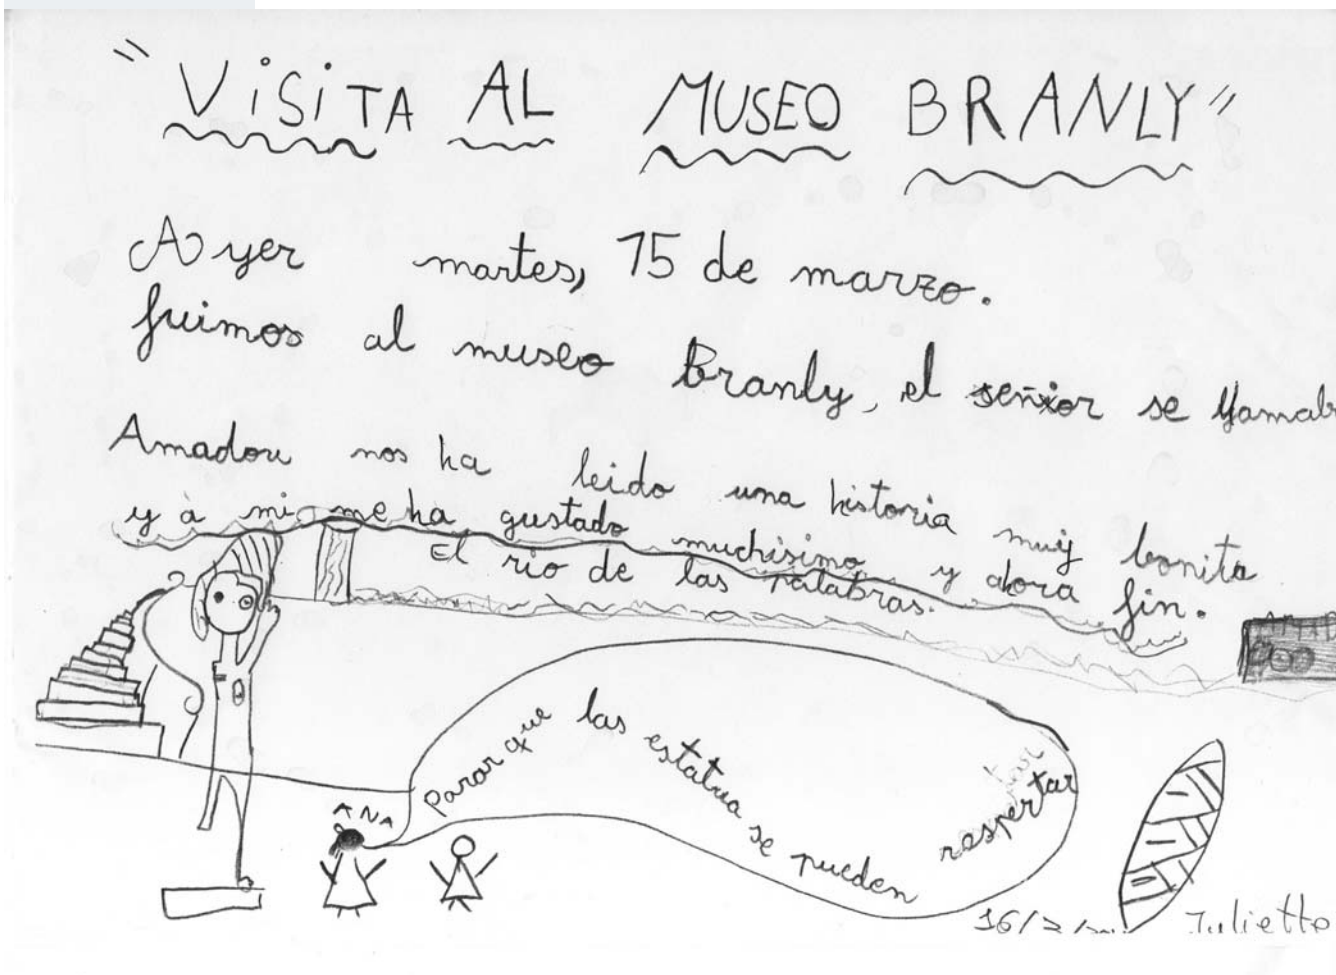 "VISITA AL MUSEO BRANLY"
Ayer martes, 15 de marzo.
fuimos al museo Branly, el señior se yamab
Amadou nos ha leido una historia muy bonita
y à mi me ha gustado muchisimo y ahora fin.
El rio de las palabras.
ANA
Parar que las estatua se pueden respertar
16/3/
Juliette